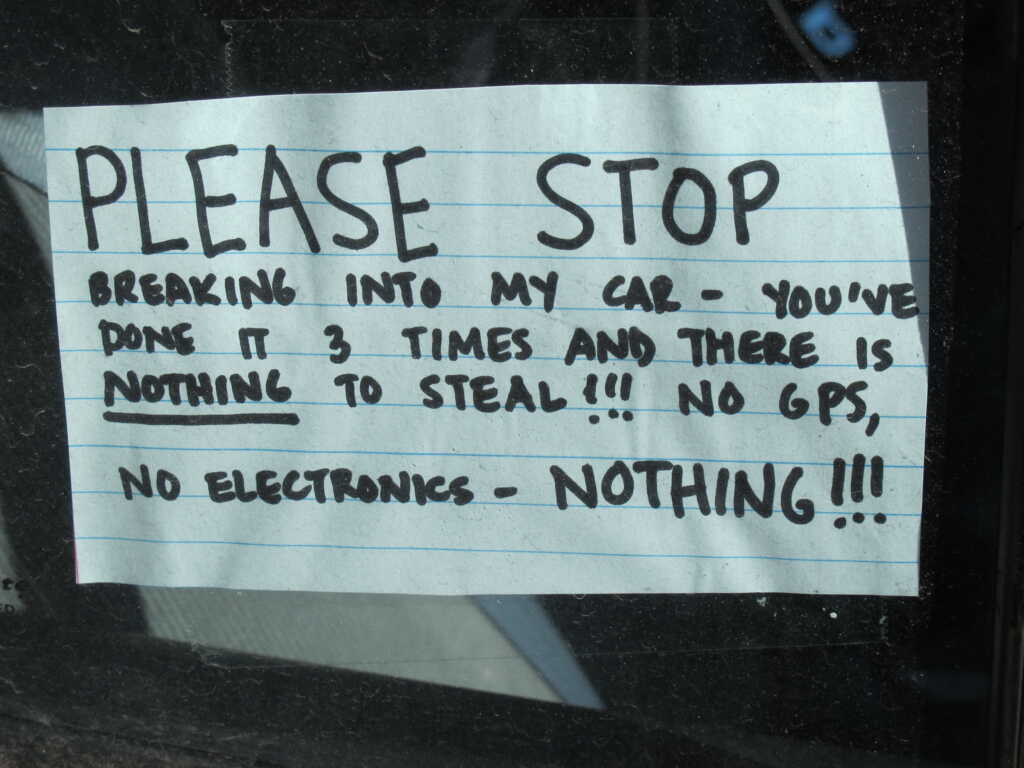 PLEASE STOP
BREAKING INTO MY CAR - YOU'VE
DONE IT 3 TIMES AND THERE IS
NOTHING TO STEAL!!!! NO GPS,
NO ELECTRONICS - NOTHING!!!